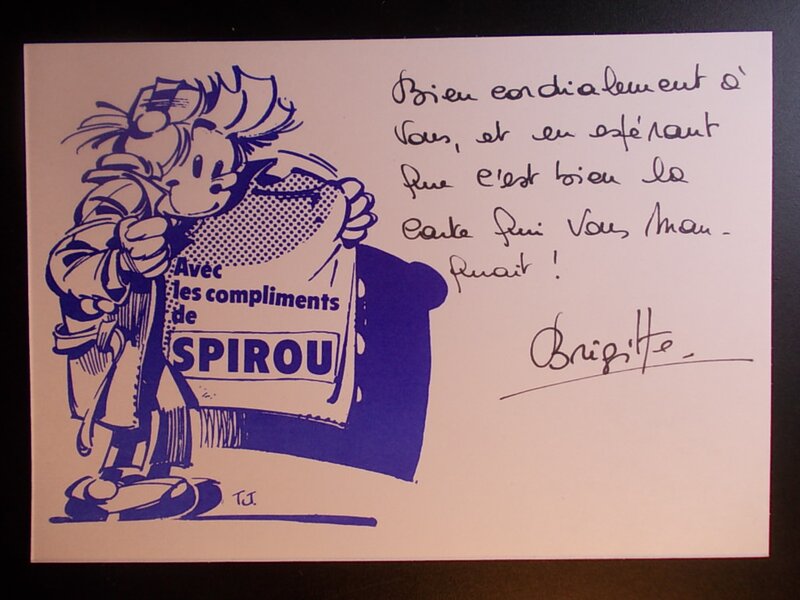 Bien cordialement à
vous, et en espérant
que c'est bien la
carte qui vous man-
quait !
Brigitte.
Avec
les compliments
de
SPIROU
T.J.